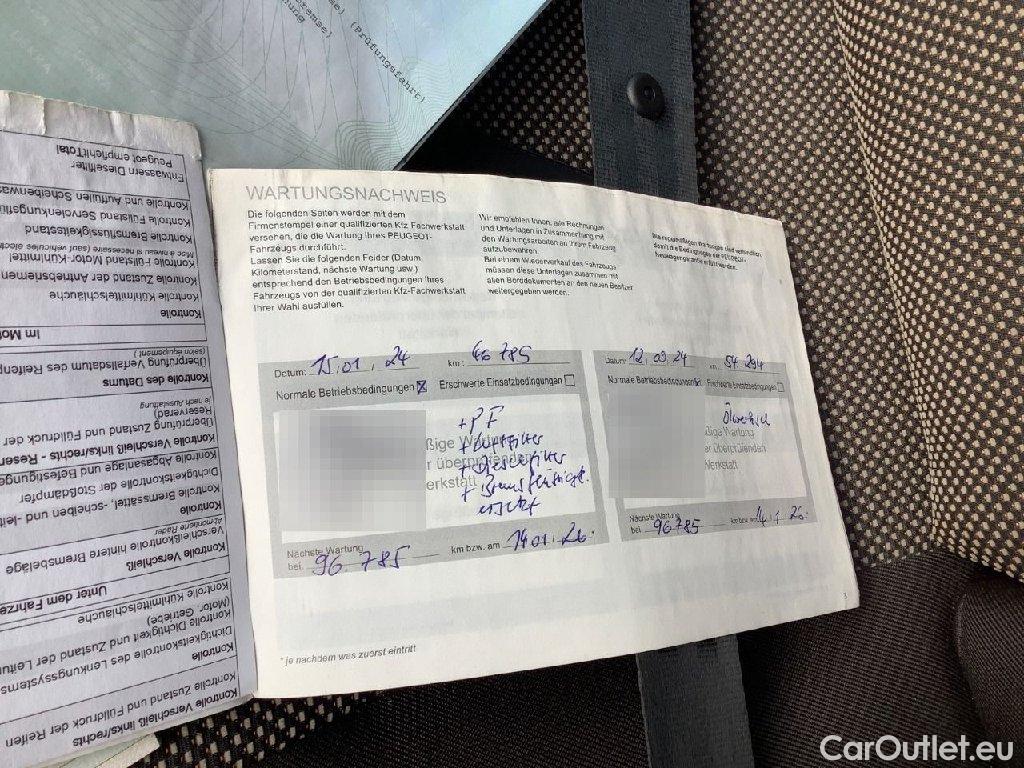 (Prüfungsfahrt)
Entwässern Dieselfilter
Peugeot empfiehlt Total
Kontrolle Füllstand Servolenkungsflü
Kontrolle Bremsflüssigkeitsstand
Kontrolle Füllstand Motor-Kühlmittel
Kontrolle Zustand der Antriebsriemen
Kontrolle Kühlmittelschläuche
Kontrolle
Im Mot
(selon équipement)
Überprüfung Verfallsdatum des Reifenp
Kontrolle des Datums
Je nach Ausstattung
Reserverad)
Überprüfung Zustand und Fülldruck der
Kontrolle Verschleiß links/rechts - Reser
Kontrolle Abgasanlage und Befestigungen
Dichtigkeit der Stoßdämpfer
Kontrolle Bremssattel, -scheiben und -leit
Kontrolle
Abmontierte Räder
Verschleißkontrolle hintere Bremsbeläge
Kontrolle Verschleiß
Unter dem Fahrze
Kontrolle Kühlmittelschläuche
(Motor, Getriebe)
Kontrolle Dichtigkeit und Zustand der Leitun
Dichtigkeitskontrolle des Lenkungssystems
Kontrolle
Kontrolle Zustand und Fülldruck der Reifen
Kontrolle Verschleiß links/rechts
WARTUNGSNACHWEIS
Die folgenden Seiten werden mit dem
Firmenstempel einer qualifizierten Kfz Fachwerkstatt
versehen, die die Wartung Ihres PEUGEOT-
Fahrzeugs durchführt.
Lassen Sie die folgenden Felder (Datum,
Kilometerstand, nächste Wartung usw.)
entsprechend den Betriebsbedingungen Ihres
Fahrzeugs von der qualifizierten Kfz-Fachwerkstatt
Ihrer Wahl ausfüllen.
Wir empfehlen Ihnen, alle Rechnungen
und Unterlagen in Zusammenhang mit
den Wartungsarbeiten an Ihrem Fahrzeug
aufzubewahren.
Bei einem Wiederverkauf des Fahrzeugs
müssen diese Unterlagen zusammen mit
allen Borddokumenten an den neuen Besitzer
weitergegeben werden.
Datum: 15.01.24 km: 46 785
Normale Betriebsbedingungen Erschwerte Einsatzbedingungen
+ PF
+ Luftfilter
ßige Wartung
er überprüfenden
erkstatt
+ Dieselfilter
+ Bremsflüssigk.
ersetzt
Nächste Wartung
bei 96 785 km bzw. am 14.01.26.
Datum: 12.09.24 km 54 294
Normale Betriebsbedingungen Erschwerte Einsatzbedingungen
Ölwechsel
ßige Wartung
er überprüfenden
Werkstatt
Nächste Wartung
bei 96785 km bzw. am 14.1.26.
* je nachdem was zuerst eintritt
3
CarOutlet.eu